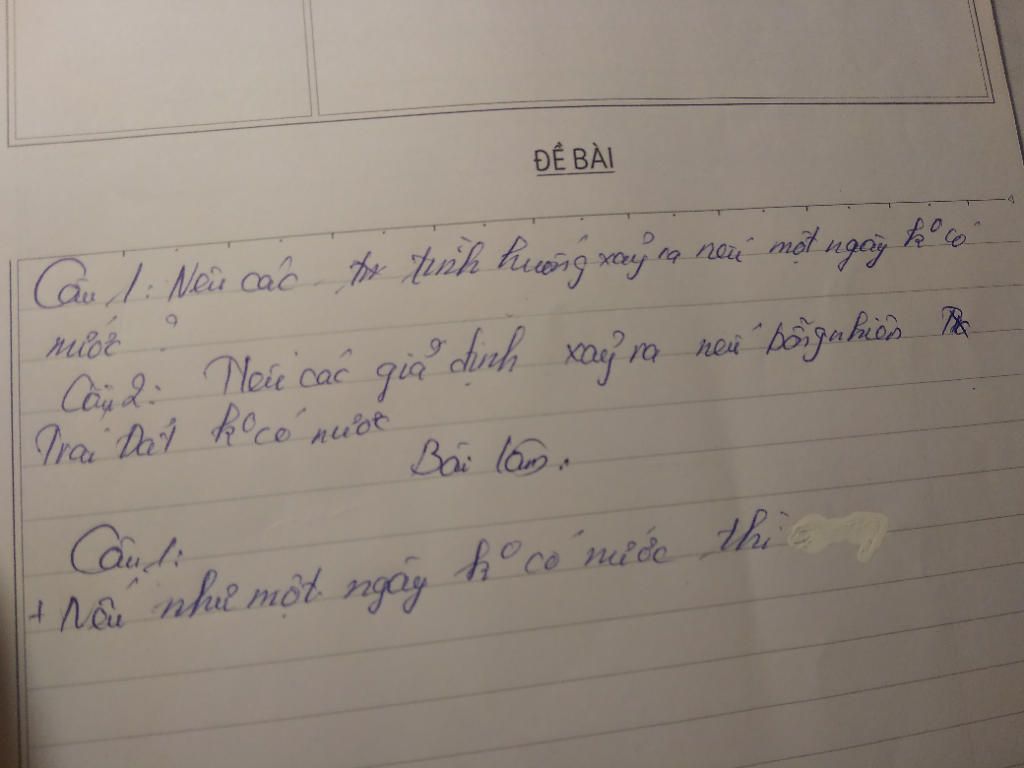 ĐỀ BÀI
Câu 1: Nêu các tình huống xảy ra nếu một ngày k° có
nước ?
Câu 2: Nêu các giả định xảy ra nếu bỗng nhiên
Trái Đất k° có nước
Bài làm.
Câu 1:
+ Nếu như một ngày k° có nước thì